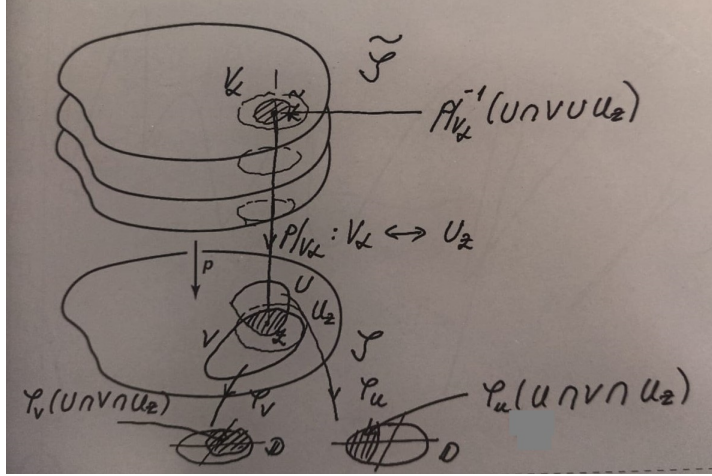 V_α
~
𝒮
z̃
P|_{V_α}^{-1}(U∩V∪U_z)
P|_{V_α} : V_α ↔ U_z
P
U
U_z
V
z
𝒮
φ_v
φ_u
φ_v(U∩V∩U_z)
φ_u(U∩V∩U_z)
D
D